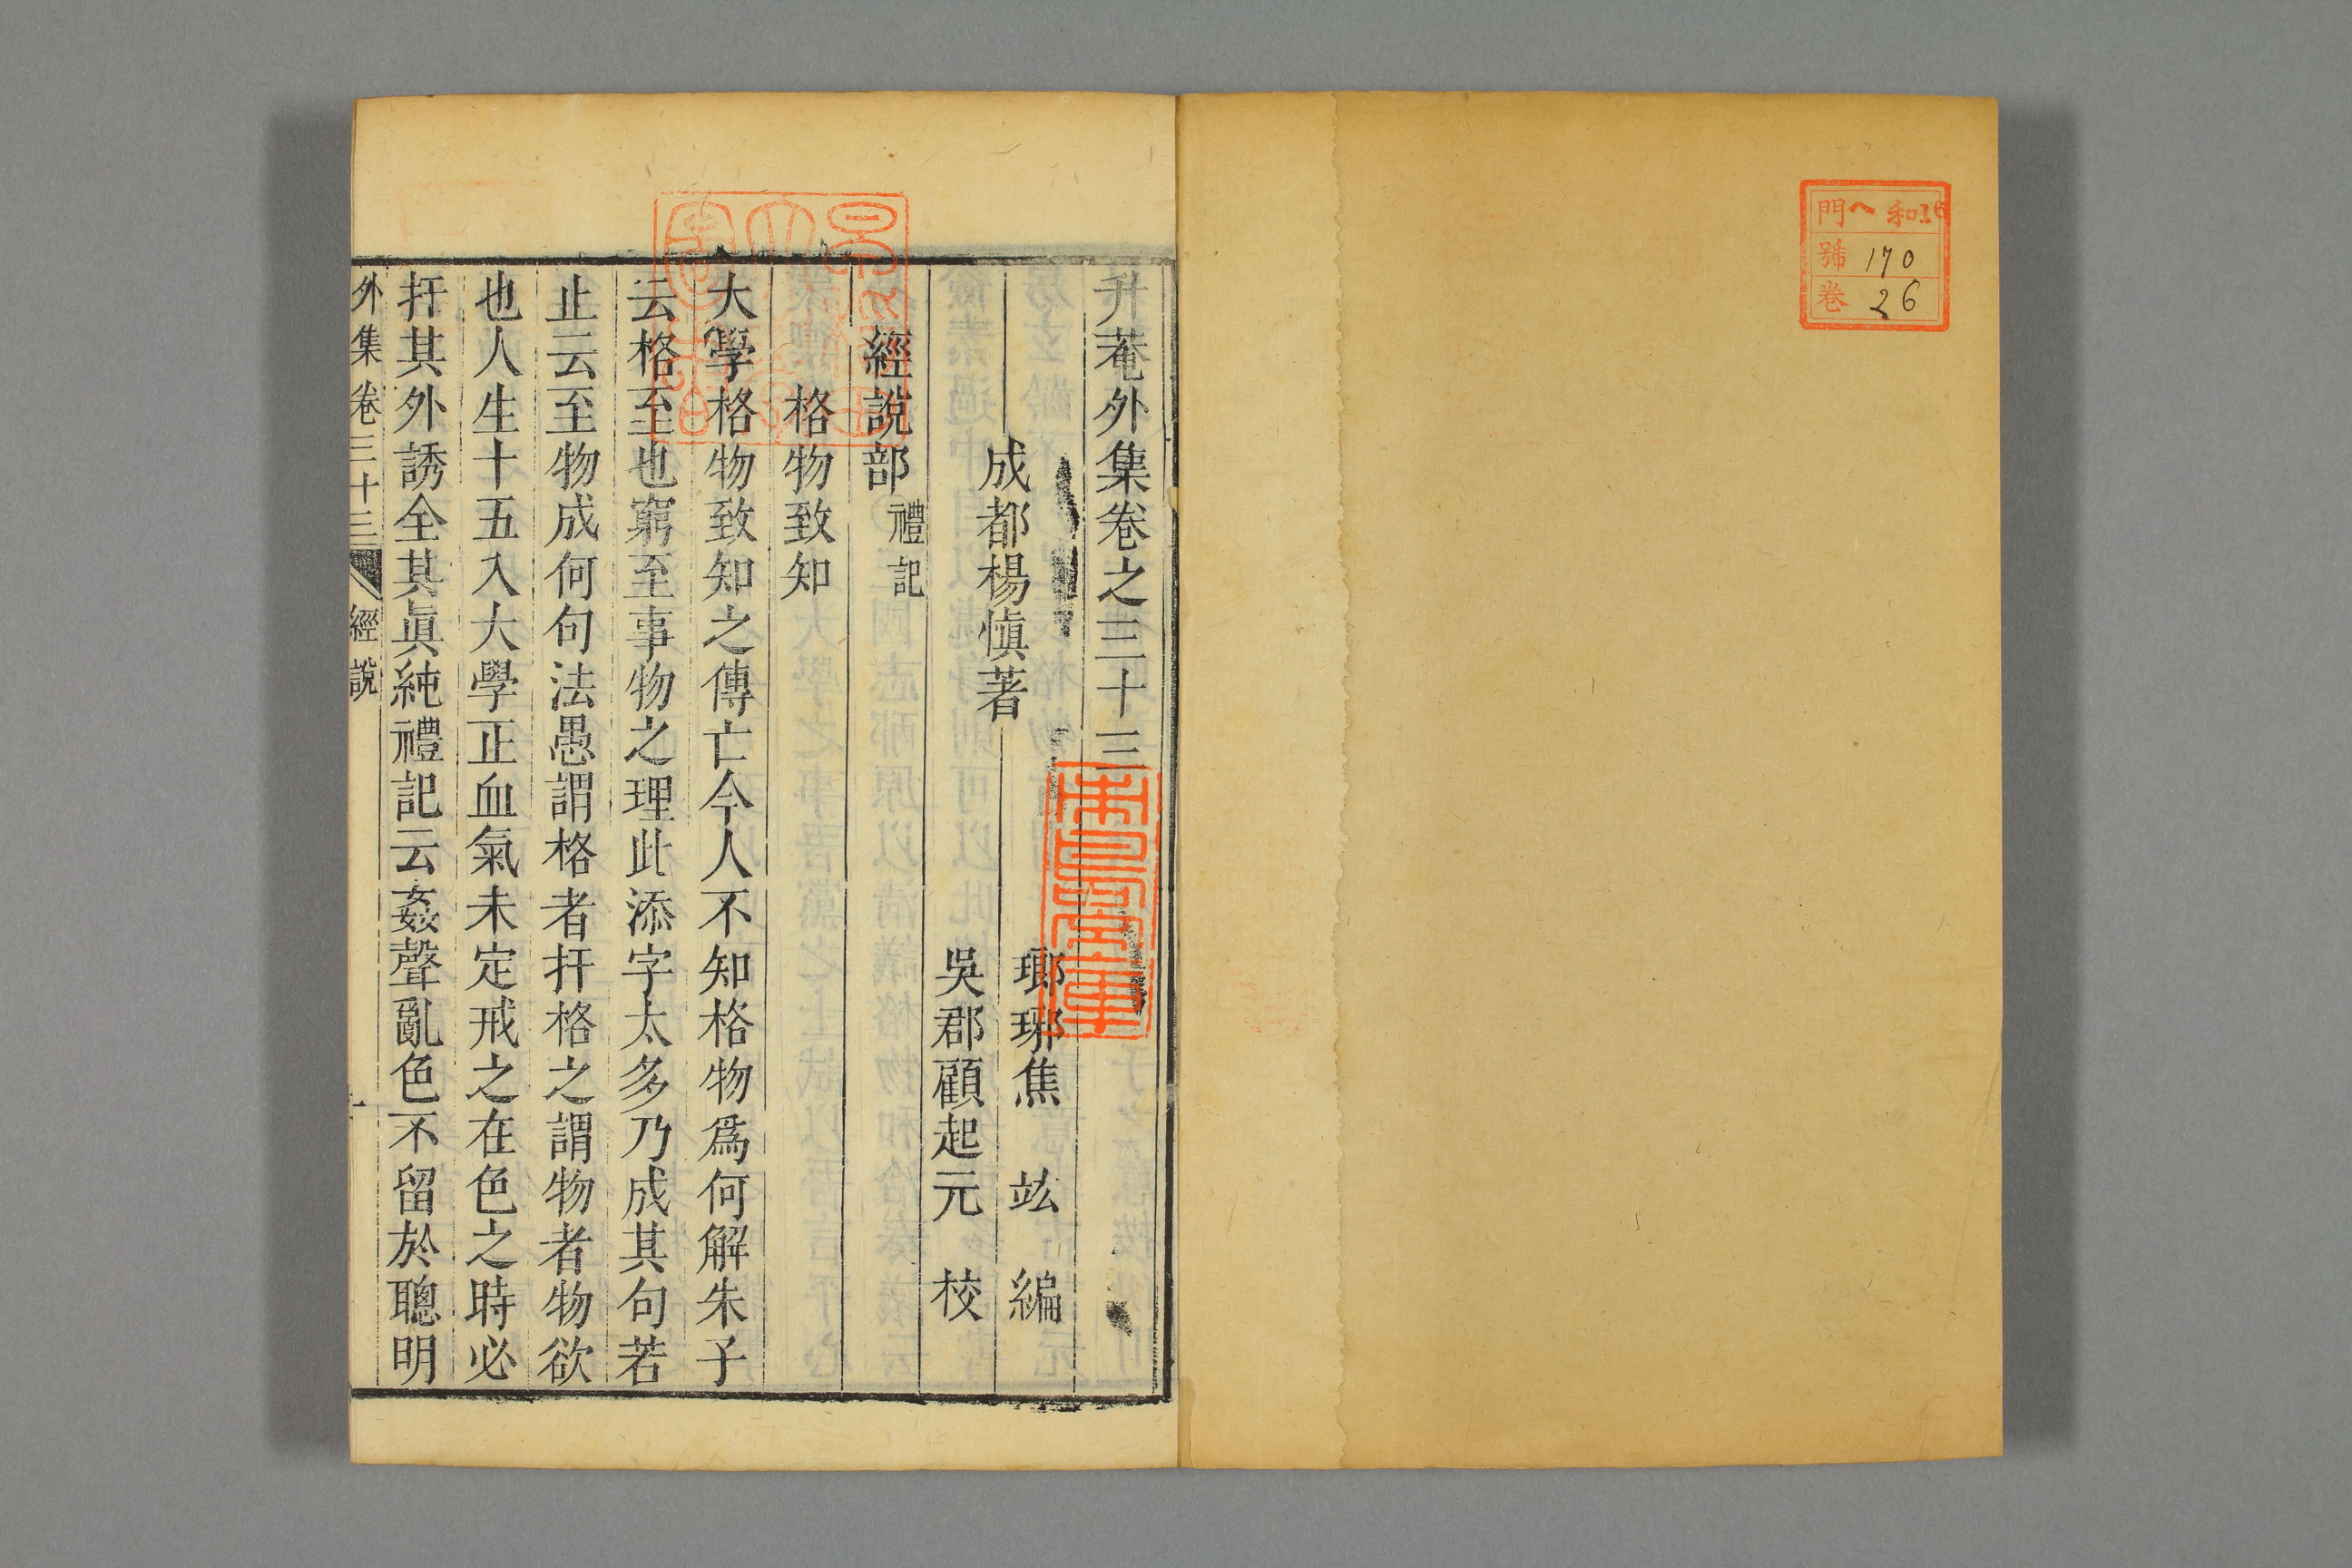 門 ヘ 和16
號 170
卷 26
升菴外集卷之三十三
成都楊慎著
瑯琊焦 竑 編
吳郡顧起元 校
經說部 禮記
格物致知
大學格物致知之傳亡今人不知格物爲何解朱子
云格至也窮至事物之理此添字太多乃成其句若
止云至物成何句法愚謂格者扞格之謂物者物欲
也人生十五入大學正血氣未定戒之在色之時必
扞其外誘全其眞純禮記云姦聲亂色不留於聰明
外集卷三十三 經說 一